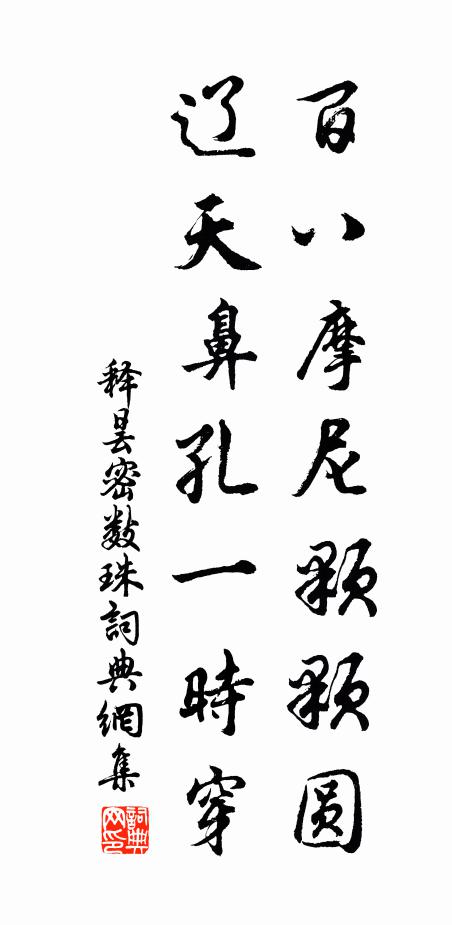 百八摩尼颗颗圆
辽天鼻孔一時穿
释昙密数珠詞典網集
詞典网印